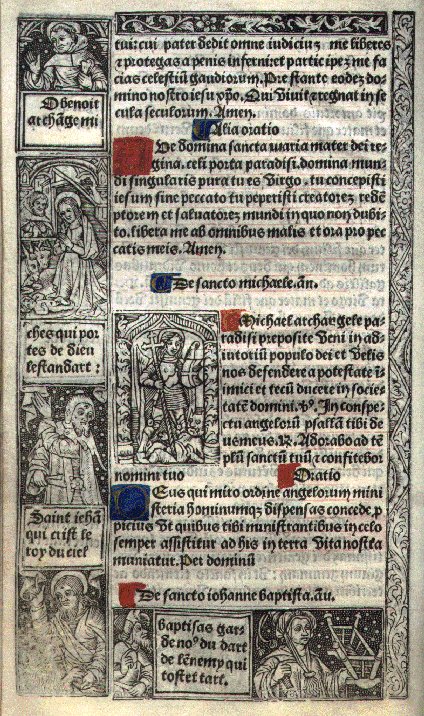 tui: cui pater dedit omne iudiciuȝ me liberes
⁊ protegas a penis inferni: et participeȝ me fa
cias celestiū gaudiorum. Prestante eodeȝ do
mino nostro iesu xp̄o. Qui viuit ⁊ regnat in se
cula seculorum. Amen.
Alia oratio
Ve domina sancta maria mater dei re
gina. celi porta paradisi. domina mun
di singularis pura tu es virgo. tu concepisti
iesum sine peccato tu peperisti creatoreȝ redē
ptorem et saluatorez mundi in quo non dubi
to. libera me ab omnibus malis et ora pro pec
catis meis. Amen.
De sancto michaele. an̄.
Michael archangele pa
radisi preposite veni in ad
iutoriū populo dei et velis
nos defendere a potestate i
nimici et tecū ducere in socie
tatē domini. v̄o. In conspe
ctu angelorū psallā tibi de
us meus. ꝶ. Adorabo ad tē
plū sanctū tuū ⁊ confitebor
nomini tuo
Oratio
Eus qui miro ordine angelorum mini
steria hominumqȝ dispensas concede. p
picius vt quibus tibi ministrantibus in celo
semper assistitur ab his in terra vita nostra
muniatur. Per dominū
De sancto iohanne baptista. an̄.
O benoit
archāge mi
chel qui por
tes de dieu
lestandart:
Saint iehā
qui crist le
roy du ciel
baptisas gar
de noꝰ du dart
de lēnemy qui
tost et tart.